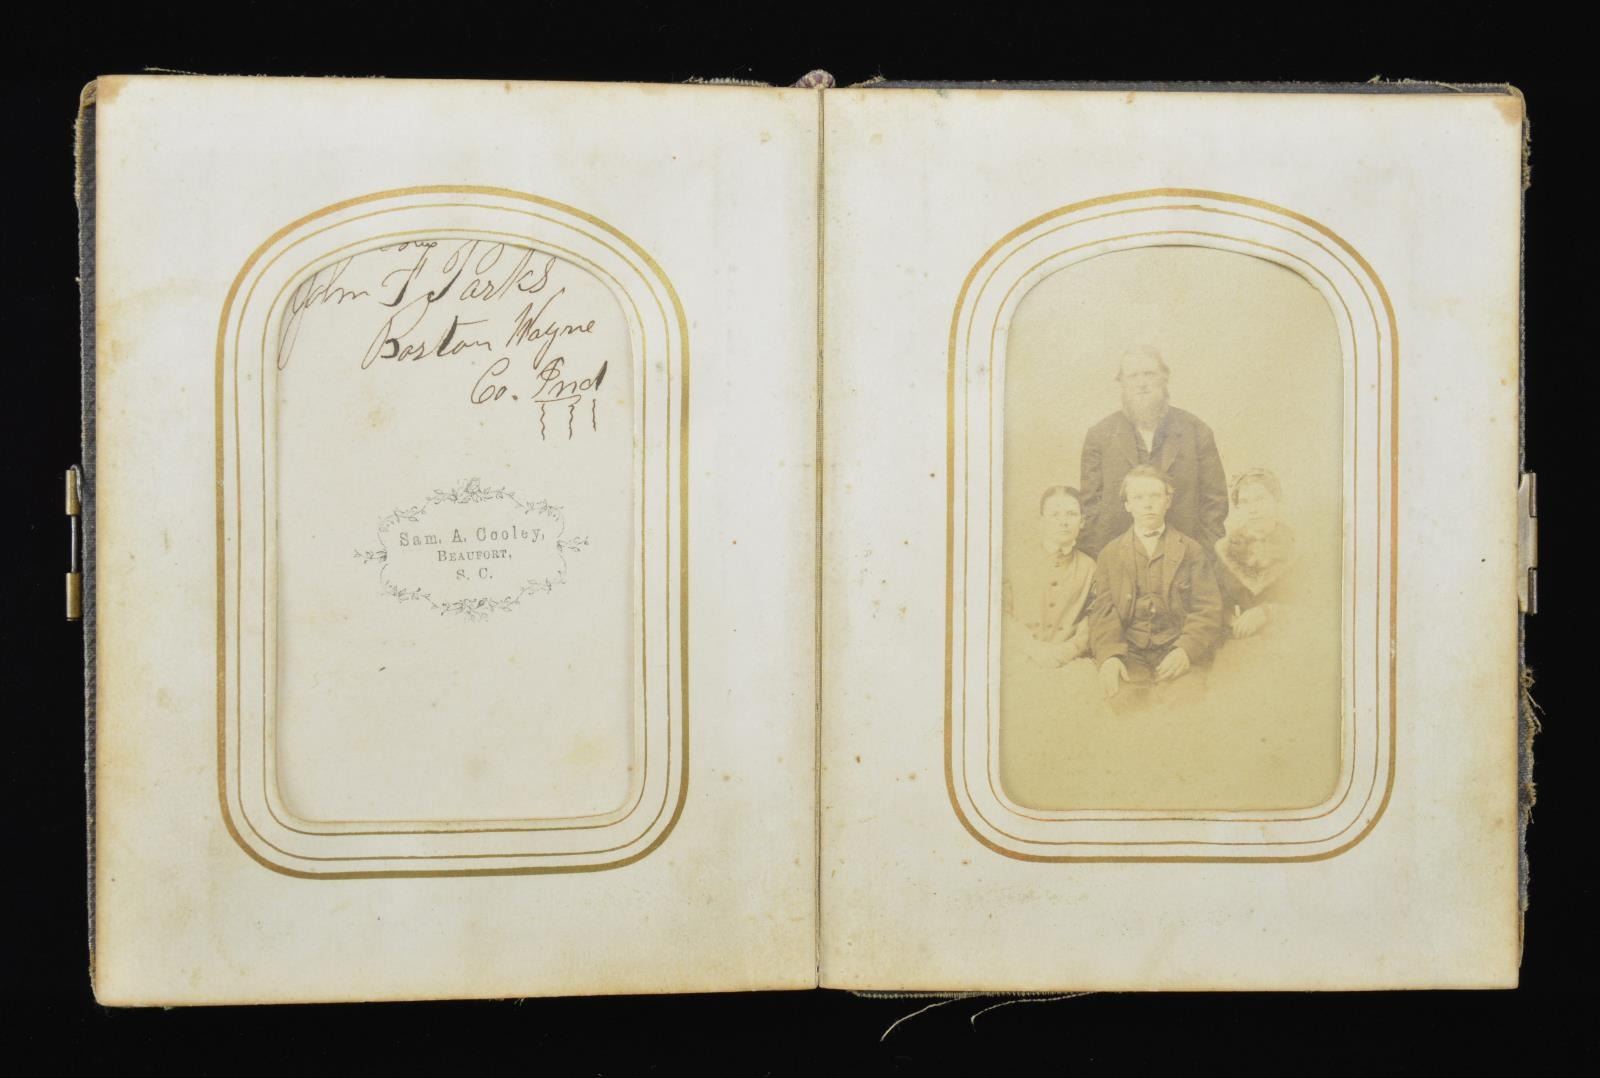 John F Parks
Boston Wayne
Co. Ind
Sam. A. Cooley,
BEAUFORT,
S. C.